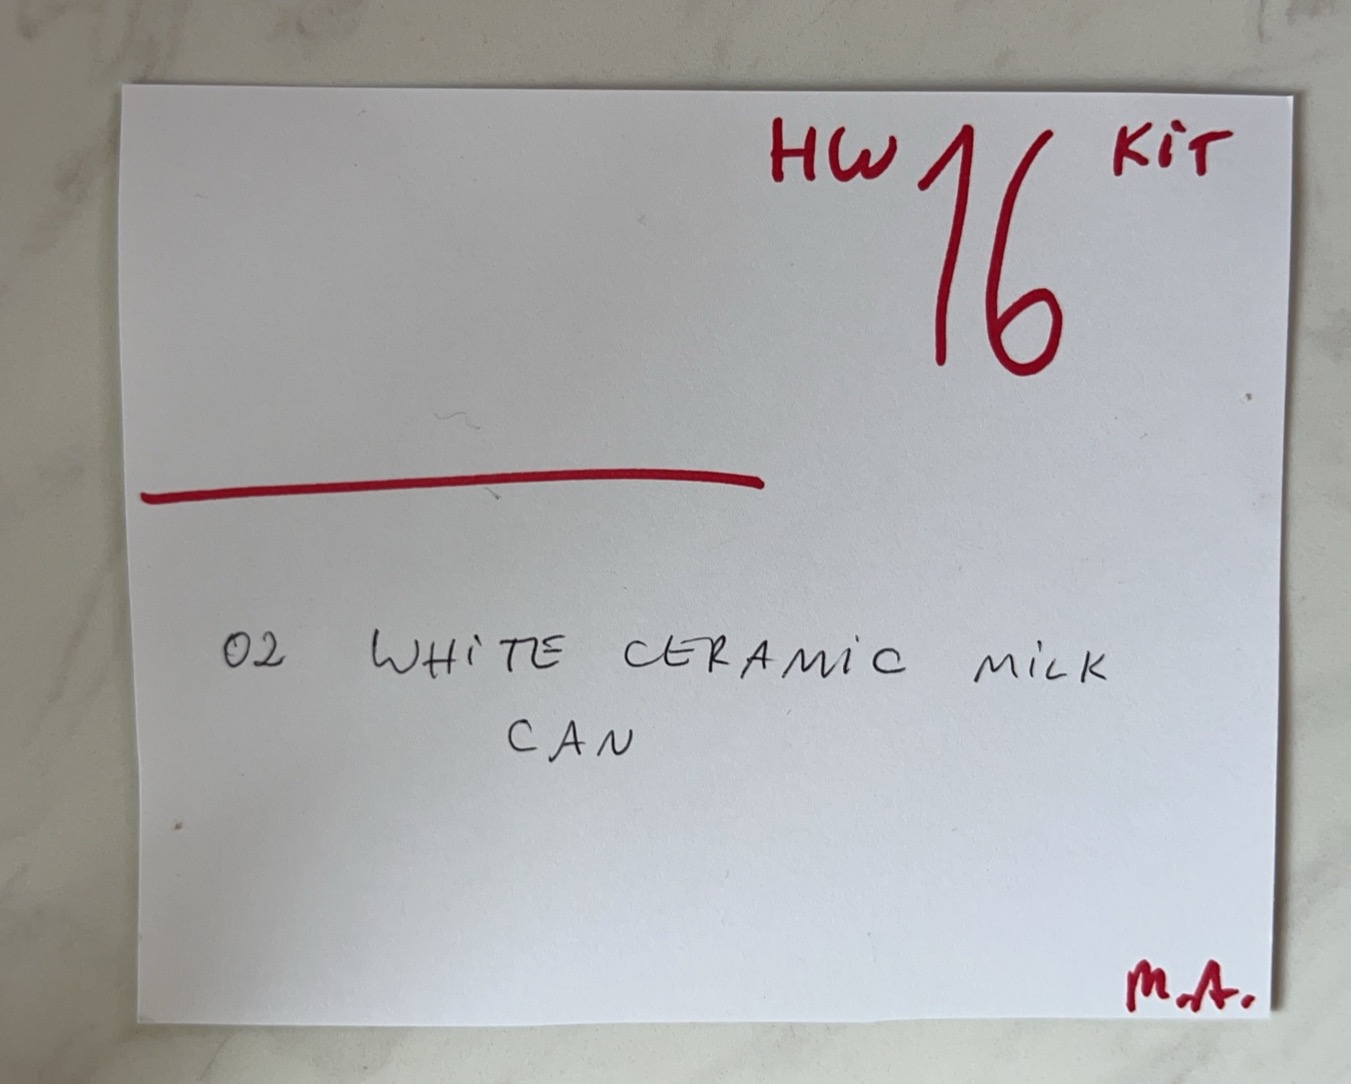 HW 16 KiT
02 WHiTE CERAMiC MiLK
CAN
M.A.